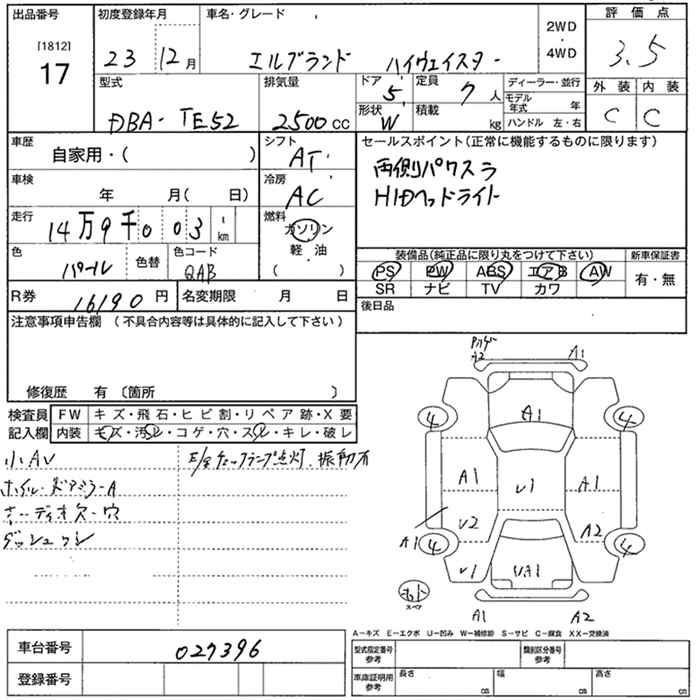 出品番号
[1812]
17
初度登録年月
23年12月
車名・グレード
エルグランド ハイウェイスター
2WD
・
4WD
評価点
3.5
外装 内装
C C
型式
DBA- TE52
排気量
2500cc
ドア
5
形状
W
定員
7人
積載
kg
ディーラー・並行
モデル年式 年
ハンドル 左・右
車歴
自家用・( )
車検
年 月( 日)
走行
14万9千003 km
色
パール
色替
色コード
QAB
シフト
AT
冷房
AC
燃料
ガソリン
軽・油
( )
セールスポイント(正常に機能するものに限ります)
両側パワスラ
HIDヘッドライト
装備品(純正品に限り丸をつけて下さい)
PS PW ABS エアB AW
SR ナビ TV カワ
新車保証書
有・無
R券
16190円
名変期限 月 日
後日品
注意事項申告欄(不具合内容等は具体的に記入して下さい)
修復歴 有〔箇所 〕
検査員
記入欄
FW キズ・飛石・ヒビ割・リペア跡・X要
内装 キズ・汚レ・コゲ・穴・スレ・キレ・破レ
小AV
E/gチェックランプ点灯、振動有
ホイル・ドアミラーA
オーディオ欠・穴
ダッシュ
A2 A1
4 A1 4
A1 V1 A1
V2 A2
A1 4 4
V1 UA1
スペア
A1 A2
A−キズ E−エクボ U−凹み W−補修跡 S−サビ C−腐食 XX−交換済
車台番号
027396
登録番号
型式指定番号
参考
類別区分番号
参考
車庫証明用
参考
長さ cm
幅 cm
高さ cm